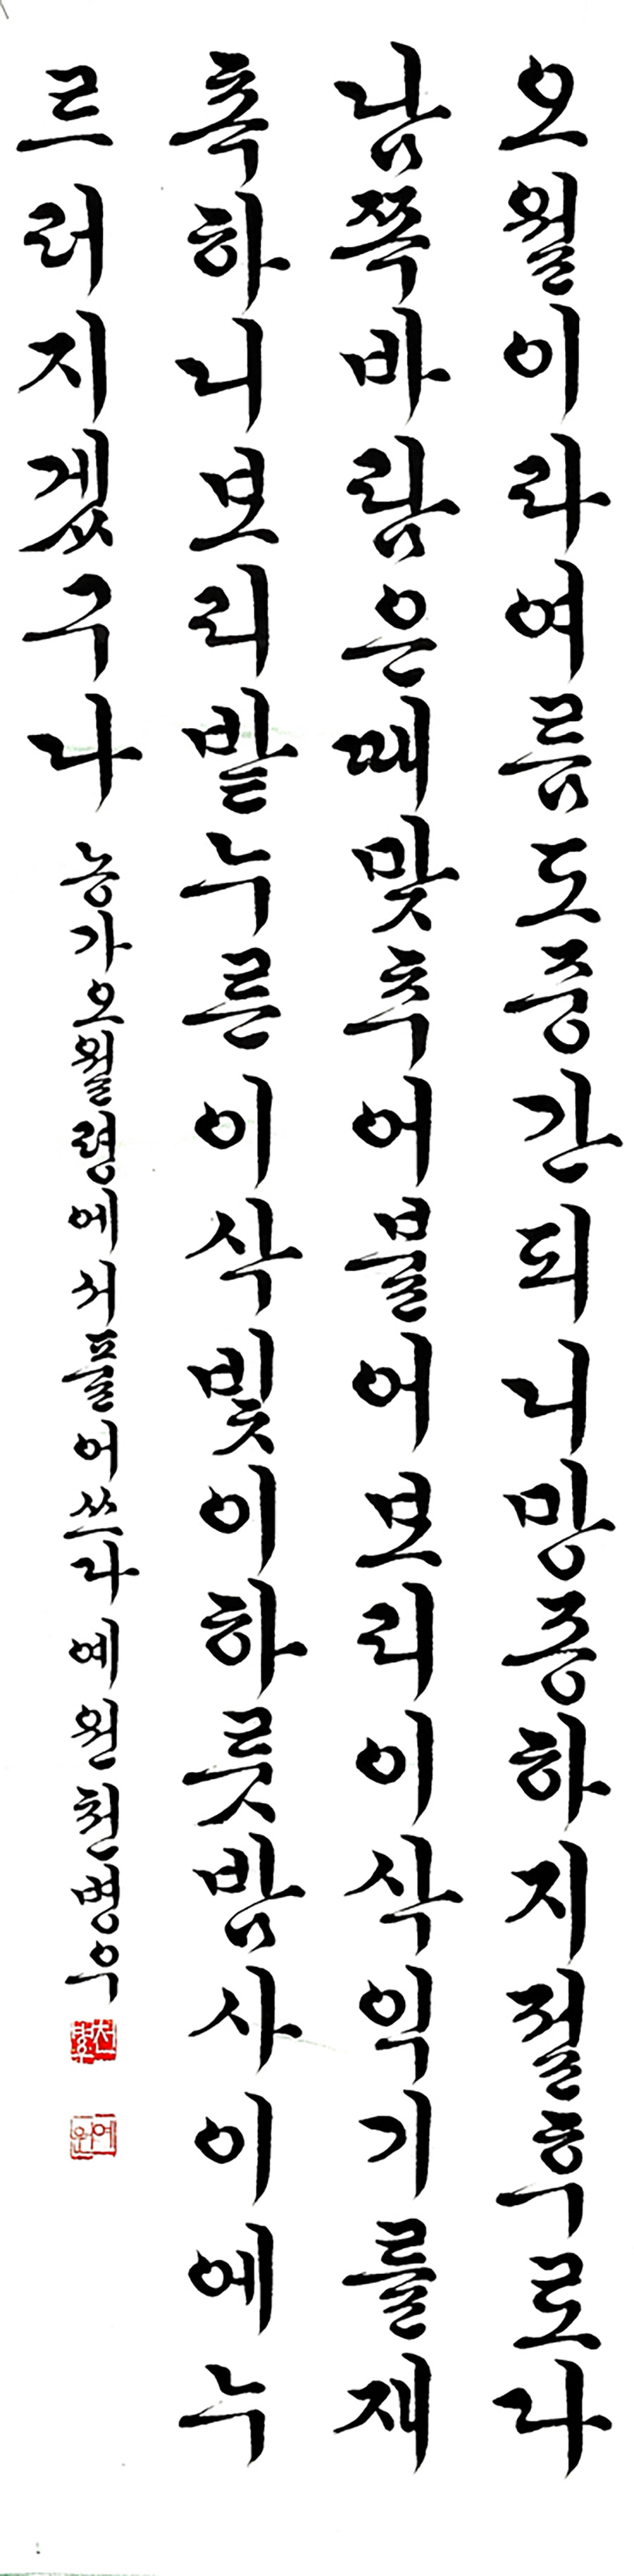 오월이라여름도중간되니망종하지절후로다
남쪽바람은때맞추어불어보리이삭익기를재
촉하니보리밭누른이삭빛이하룻밤사이에누
르러지겠구나
농가오월령에서풀어쓰다예원천병우